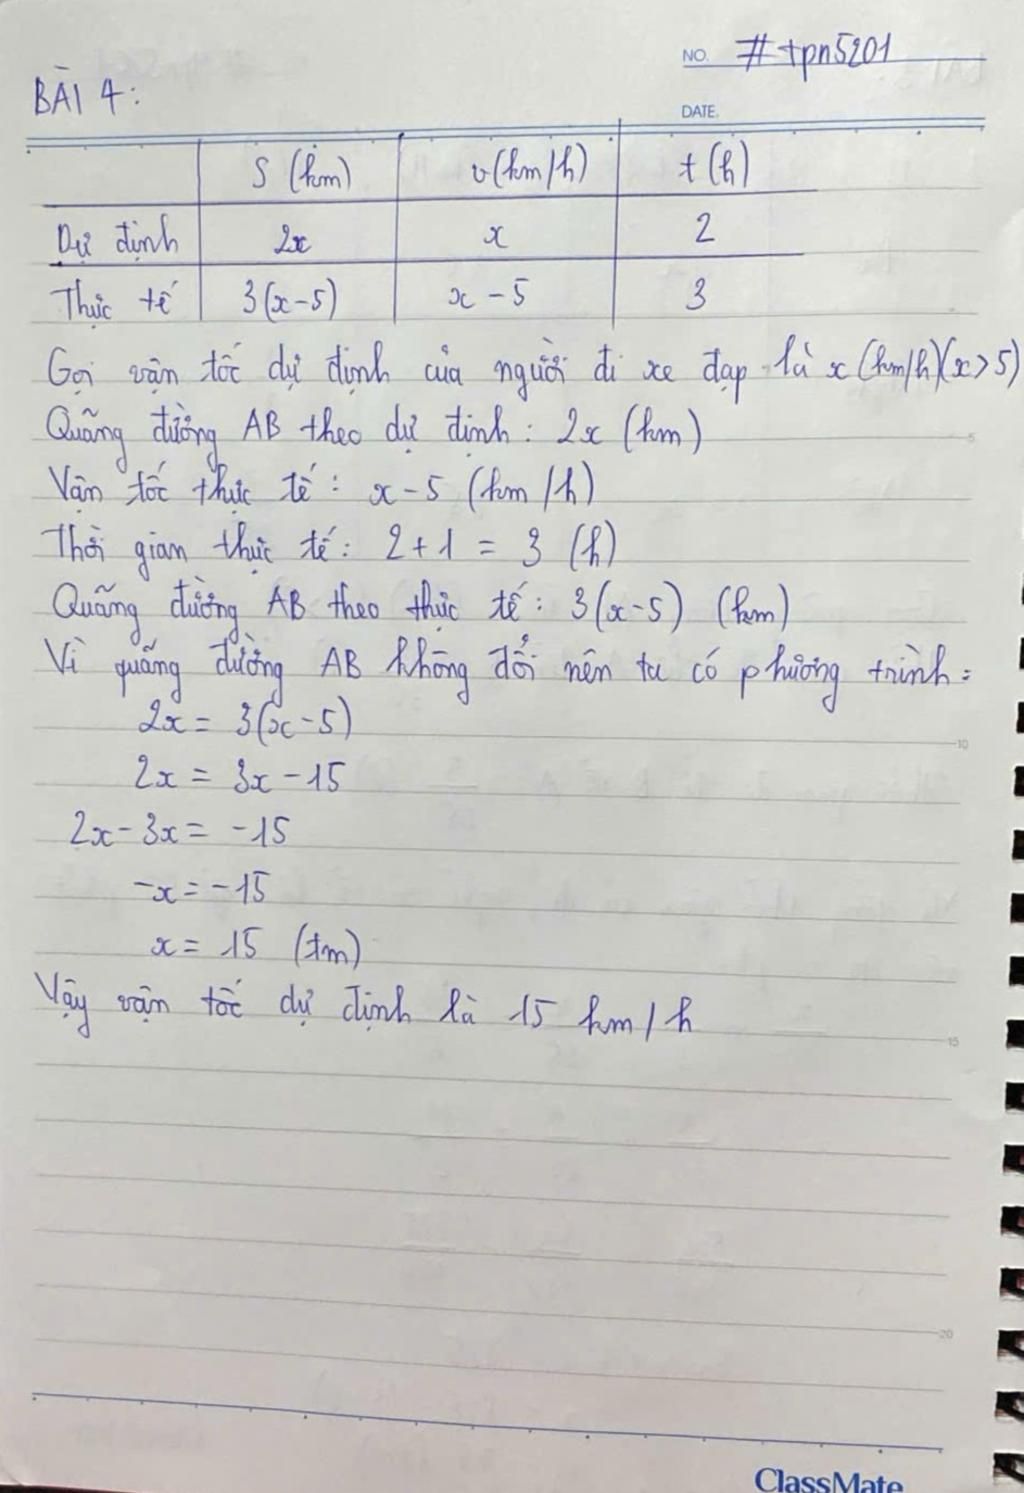 NO. #tpn5201
BÀI 4:
DATE.
S (km) v(km/h) t (h)
Dự định 2x x 2
Thực tế 3(x-5) x - 5 3
Gọi vận tốc dự định của người đi xe đạp là x (km/h)(x>5)
Quãng đường AB theo dự định: 2x (km)
5
Vận tốc thực tế: x-5 (km/h)
Thời gian thực tế: 2+1 = 3 (h)
Quãng đường AB theo thực tế: 3(x-5) (km)
Vì quãng đường AB không đổi nên ta có phương trình:
2x = 3(x-5)
10
2x = 3x - 15
2x - 3x = -15
-x = -15
x = 15 (tm)
Vậy vận tốc dự định là 15 km/h
15
20
ClassMate